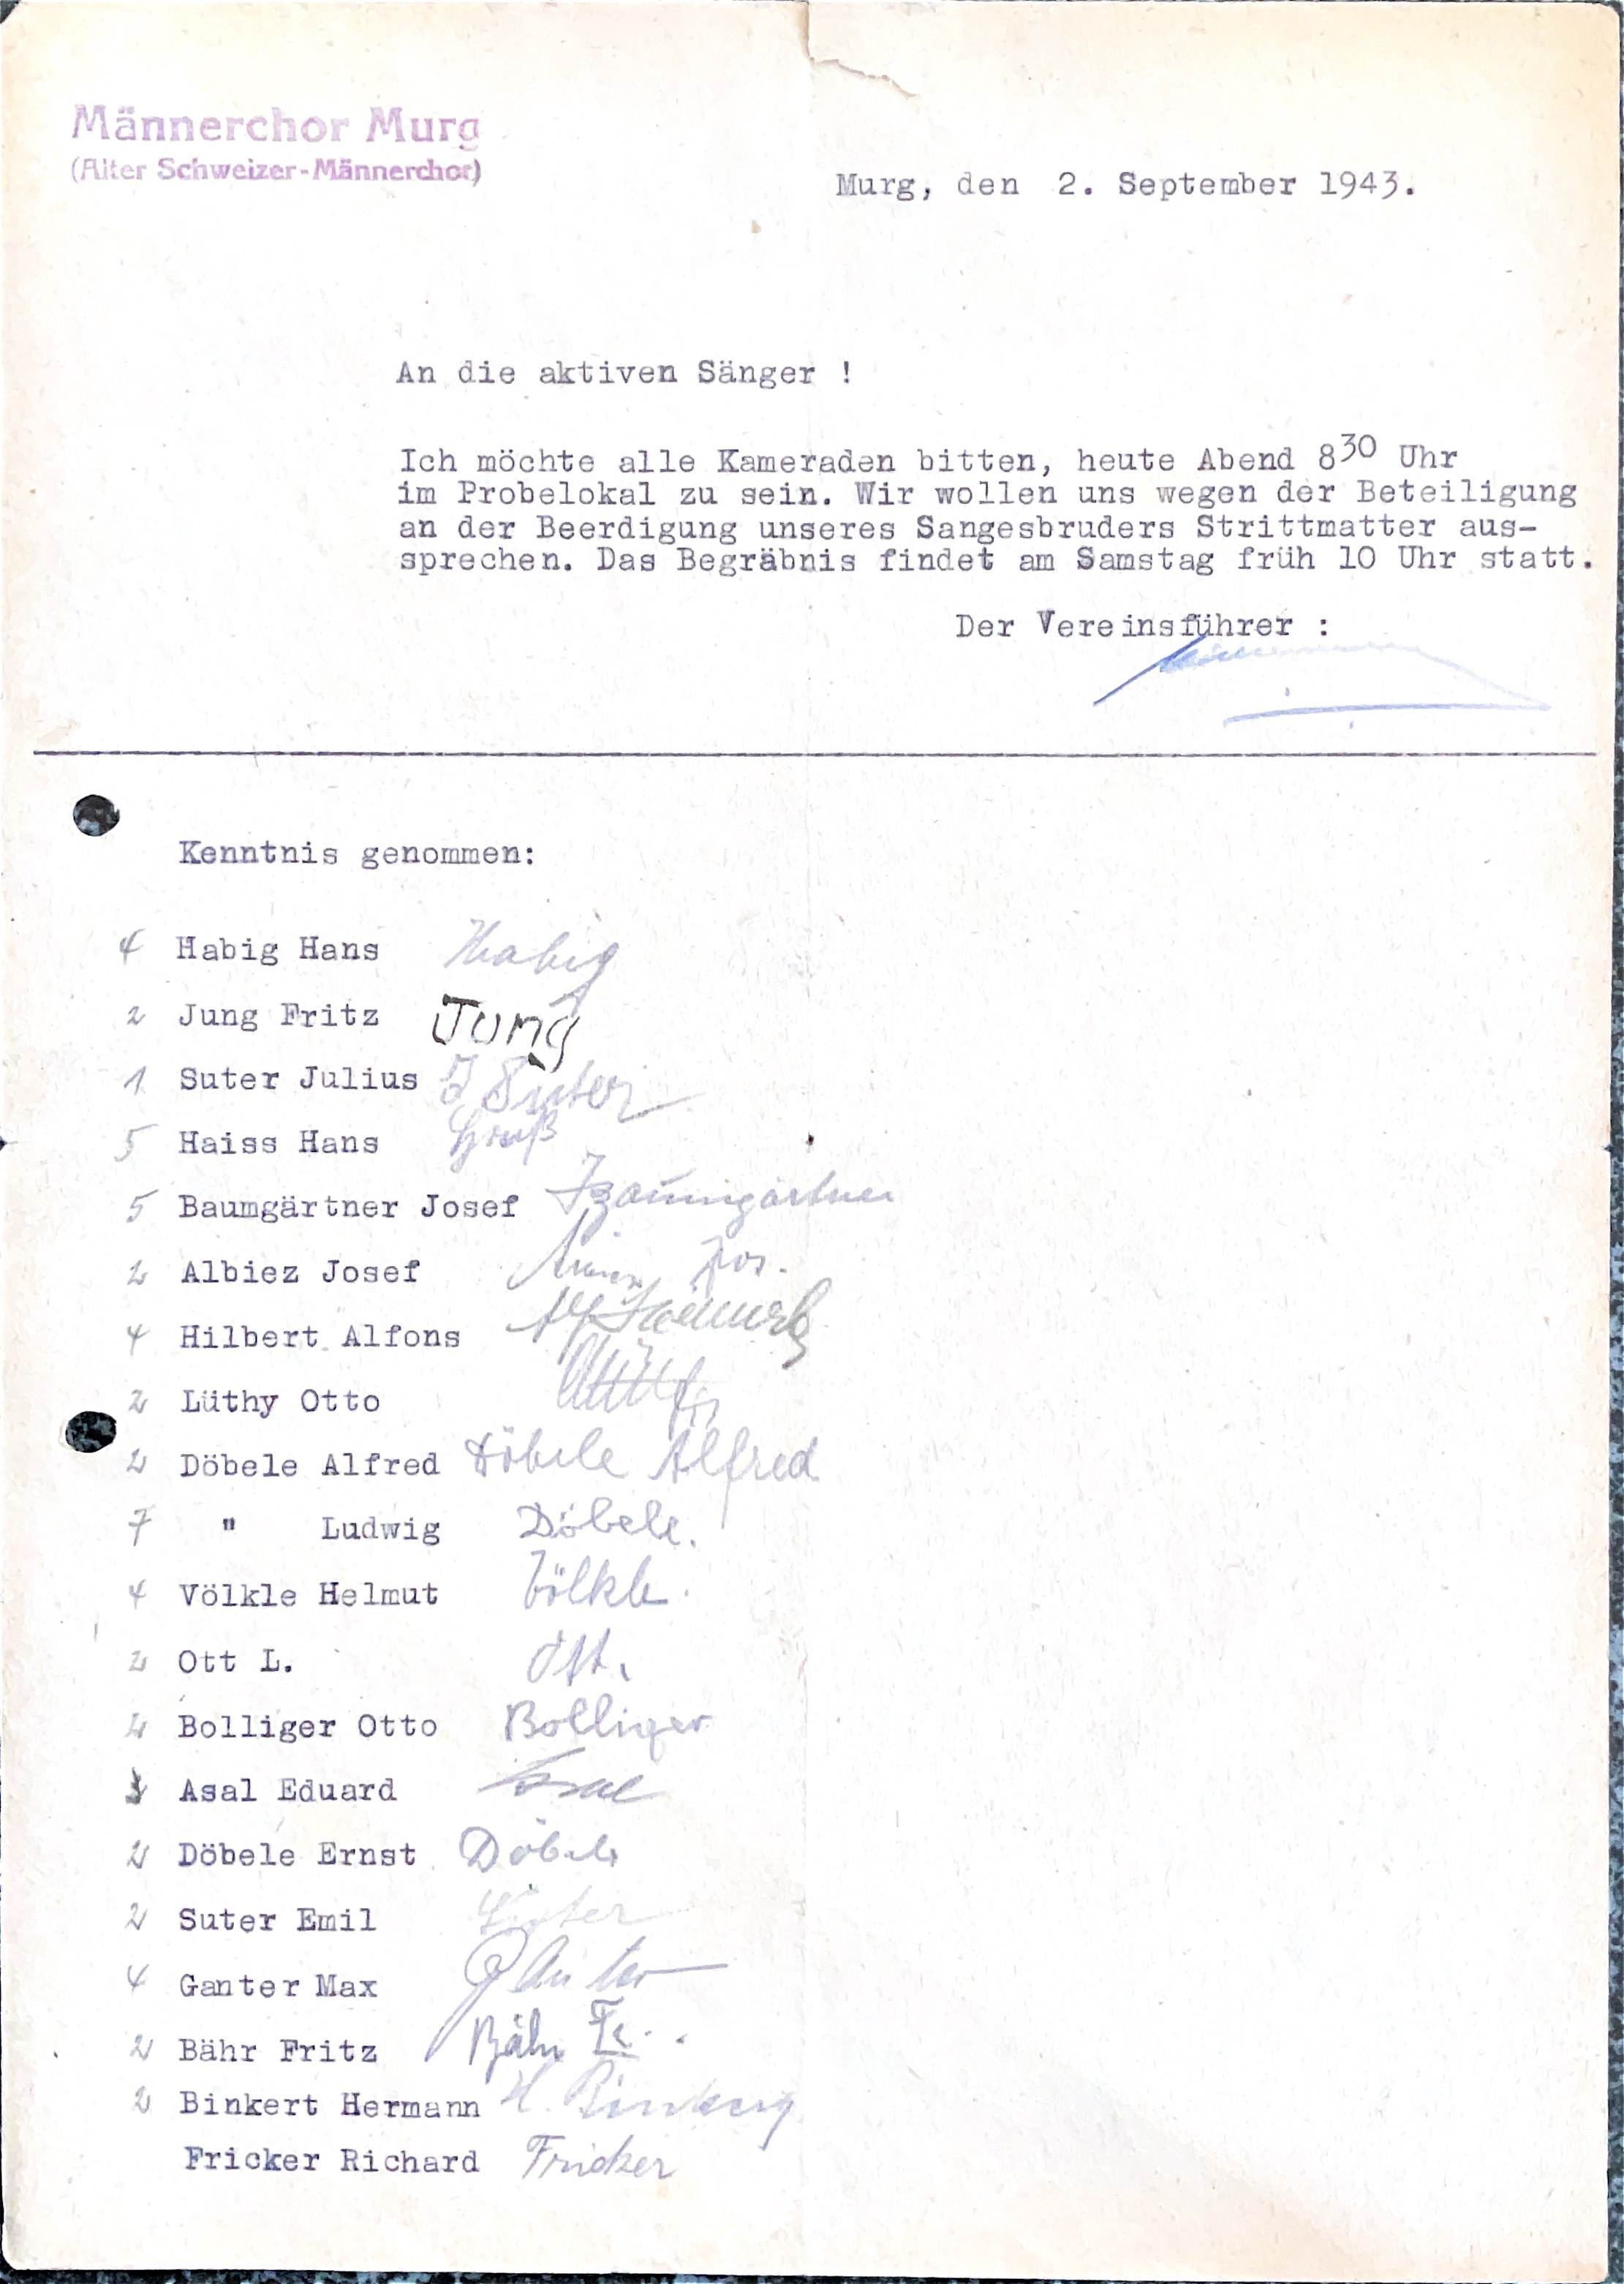 Männerchor Murg
(Alter Schweizer-Männerchor)
Murg, den 2. September 1943.
An die aktiven Sänger !
Ich möchte alle Kameraden bitten, heute Abend 8³⁰ Uhr
im Probelokal zu sein. Wir wollen uns wegen der Beteiligung
an der Beerdigung unseres Sangesbruders Strittmatter aus-
sprechen. Das Begräbnis findet am Samstag früh 10 Uhr statt.
Der Vereinsführer :
Kenntnis genommen:
4 Habig Hans Habig
2 Jung Fritz Jung
1 Suter Julius J Suter
5 Haiss Hans
5 Baumgärtner Josef Baumgartner
2 Albiez Josef Jos.
4 Hilbert Alfons
2 Lüthy Otto
2 Döbele Alfred Döbele Alfred
7 " Ludwig Döbele.
4 Völkle Helmut Völkle.
2 Ott L. Ott.
2 Bolliger Otto Bolliger
Asal Eduard Asal
2 Döbele Ernst Döbele
2 Suter Emil Suter
4 Ganter Max Ganter
2 Bähr Fritz Bähr Fr..
2 Binkert Hermann H. Binkert
Fricker Richard Fricker